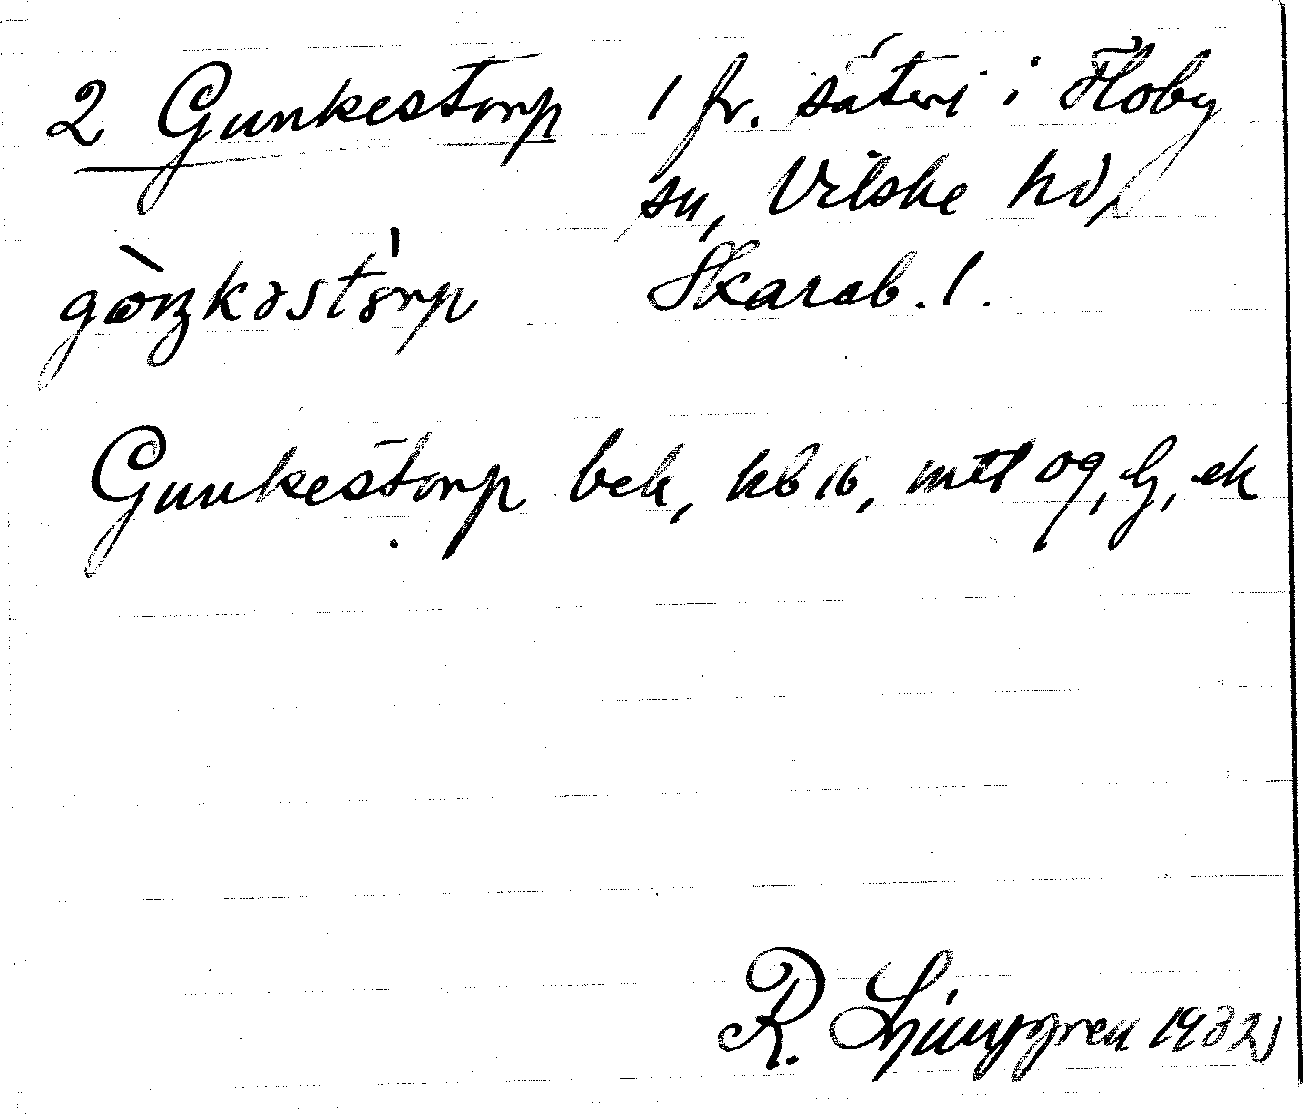 2 Gunkestorp 1 fr. säteri i Floby
sn, Vilske hd,
Skarab. l.
Gunkestorp bek, hb 16, mtl og, lj, ek
R. Ljunggren 1932